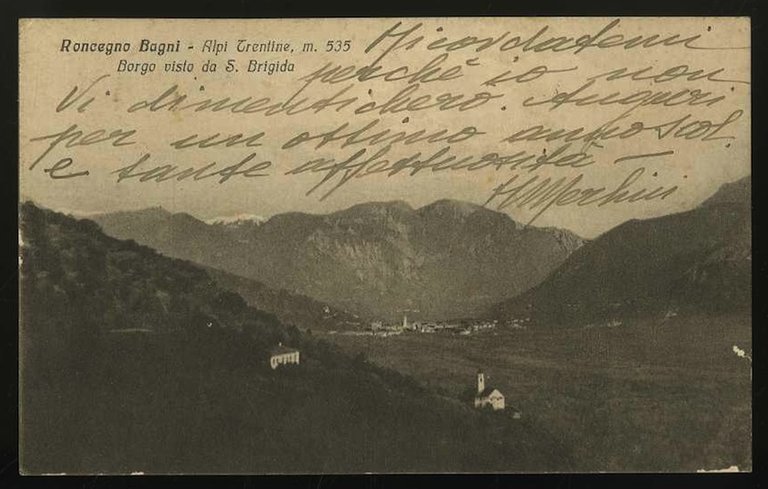 Roncegno Bagni - Alpi Trentine, m. 535
Borgo visto da S. Brigida
Ricordatemi
perchè io non
Vi dimenticherò. Auguri
per un ottimo anno scol.
e tante affettuosità -